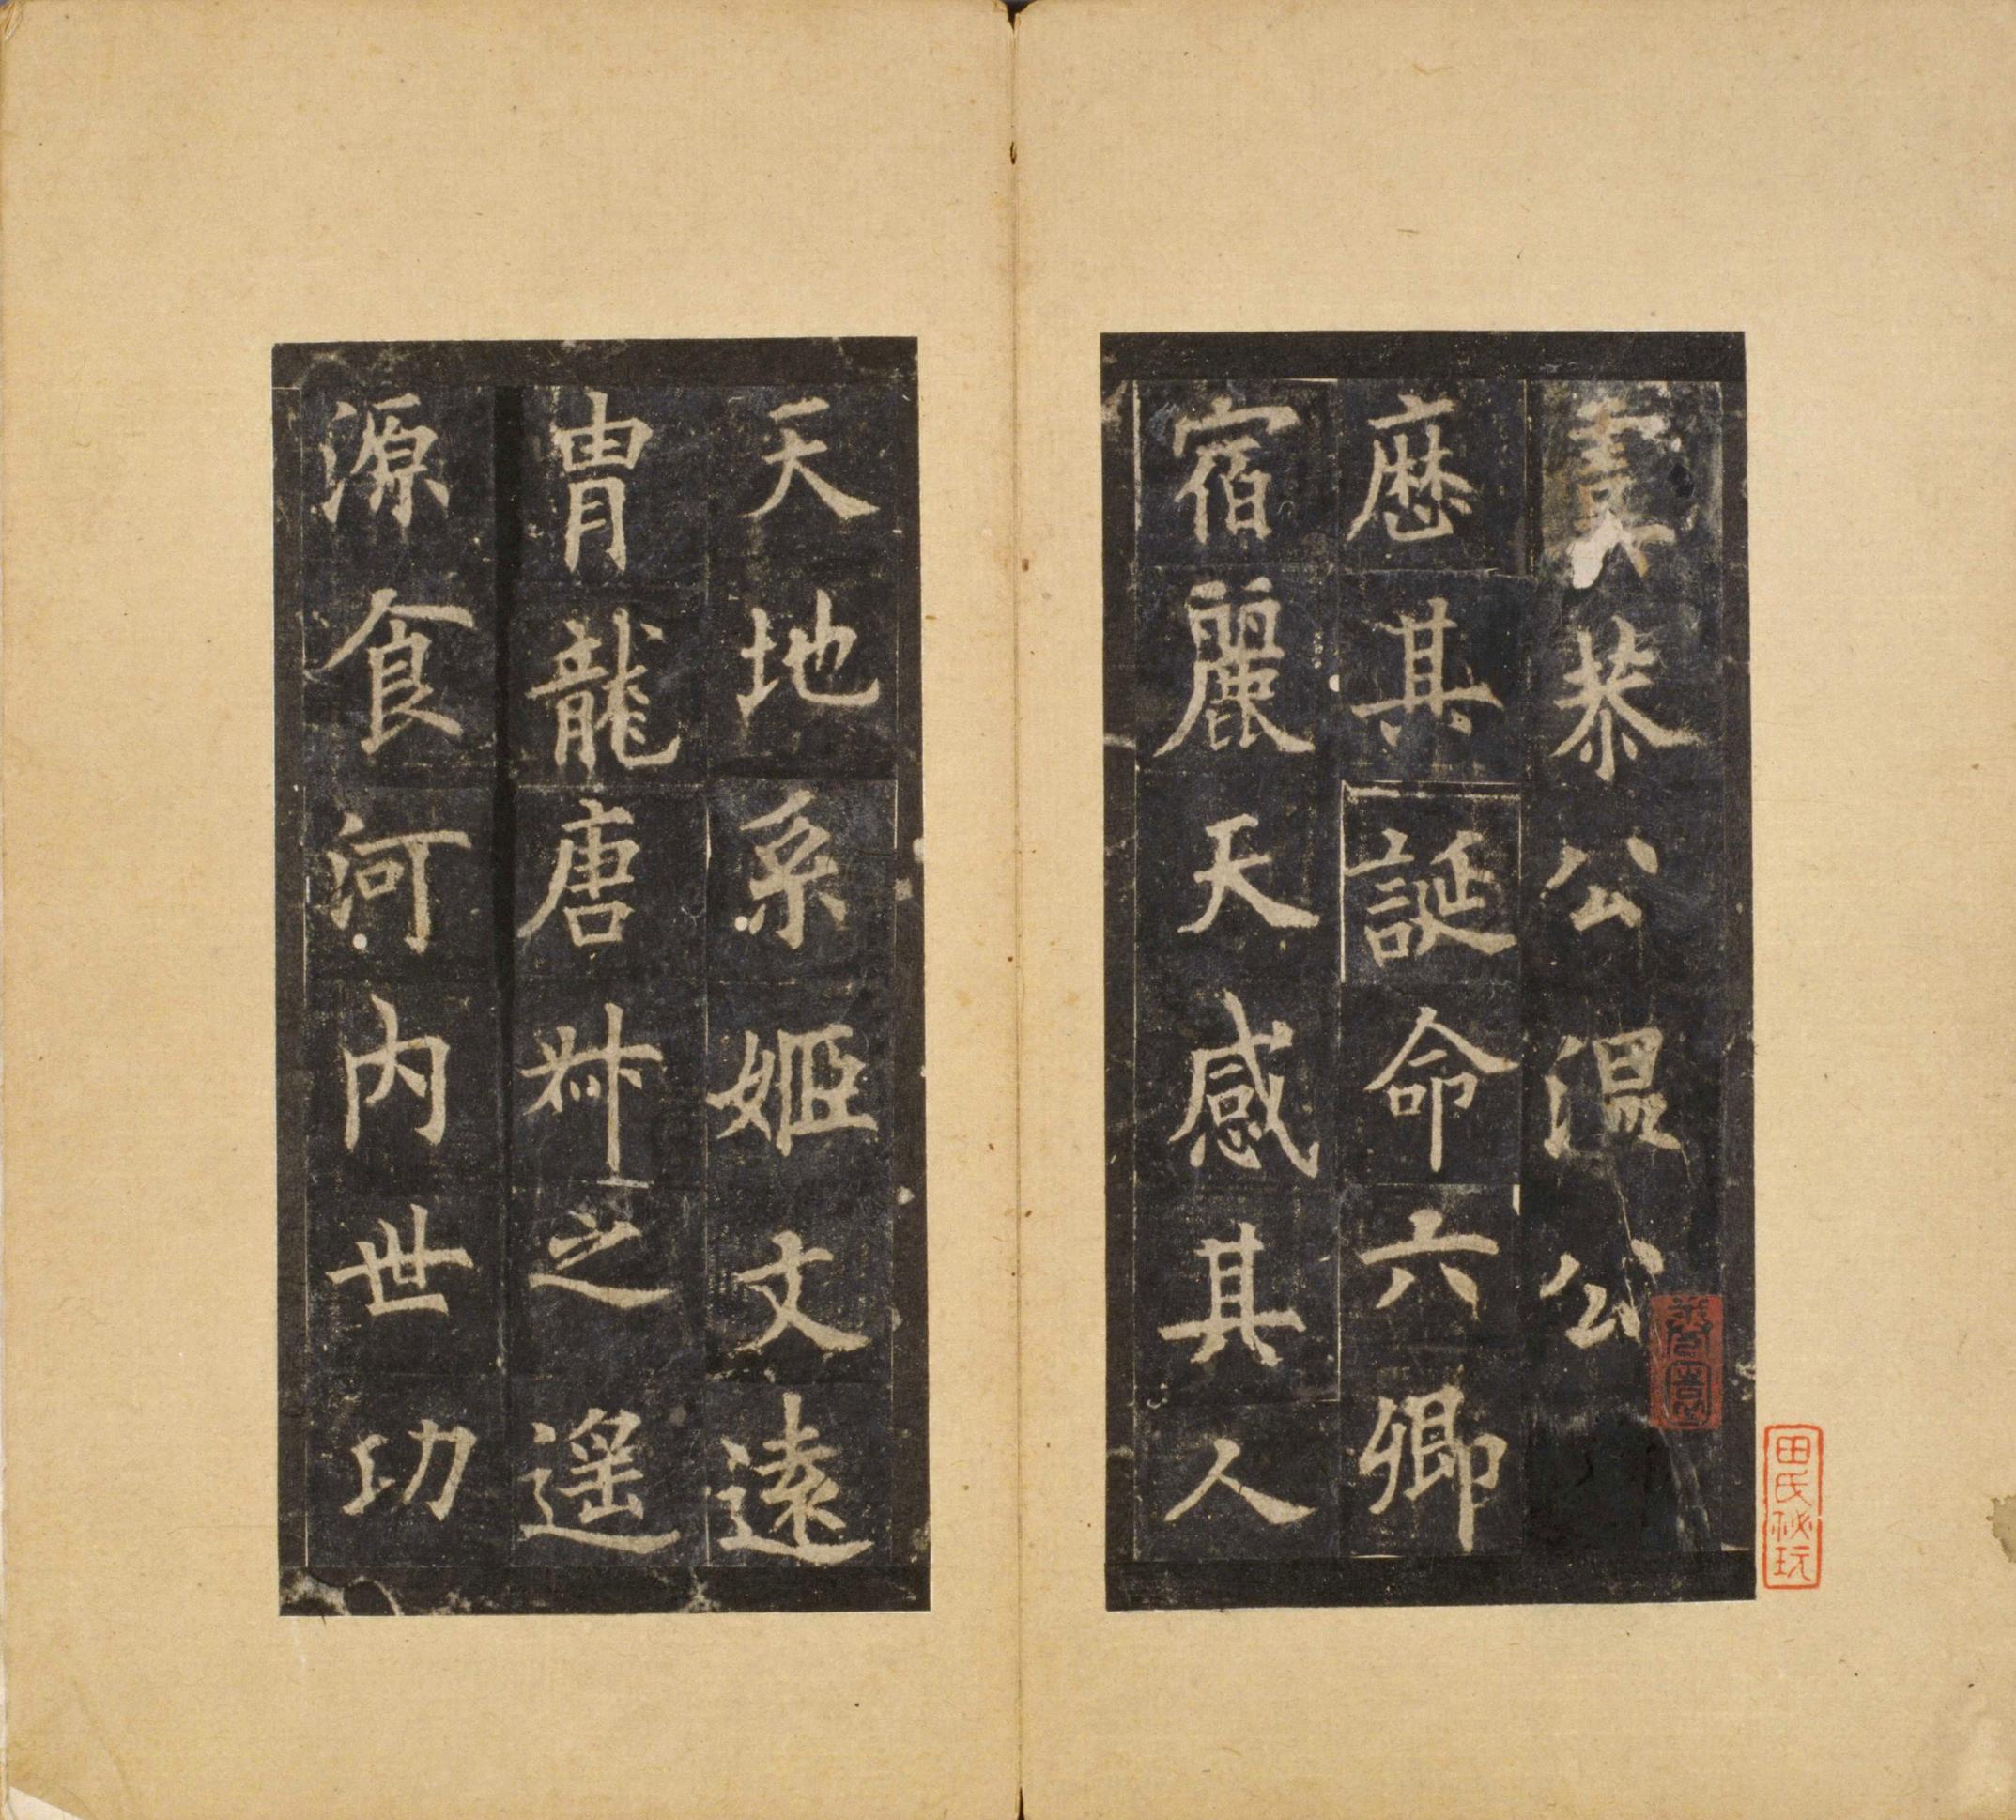 恭公温公
厯其誕命六卿
宿麗天感其人
天地系姬文遠
胄龍唐叔之遥
源食河内世功
田氏秘玩